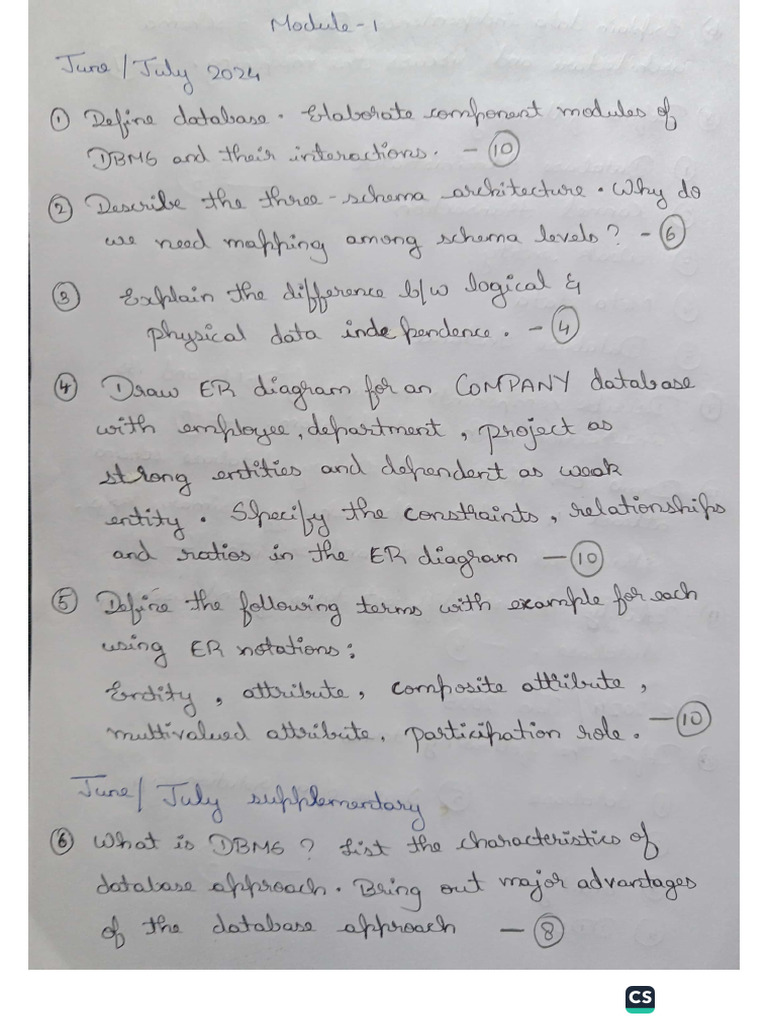 Module-1
June/July 2024
① Define database. Elaborate component modules of
DBMS and their interactions. - ⑩
② Describe the three-schema architecture. Why do
we need mapping among schema levels? - ⑥
③ Explain the difference b/w logical &
physical data independence. - ④
④ Draw ER diagram for an COMPANY database
with employee, department, project as
strong entities and dependent as weak
entity. Specify the constraints, relationships
and ratios in the ER diagram - ⑩
⑤ Define the following terms with example for each
using ER notations:
Entity, attribute, composite attribute,
multivalued attribute, participation role. - ⑩
June/July supplementary
⑥ What is DBMS? List the characteristics of
database approach. Bring out major advantages
of the database approach - ⑧
CS